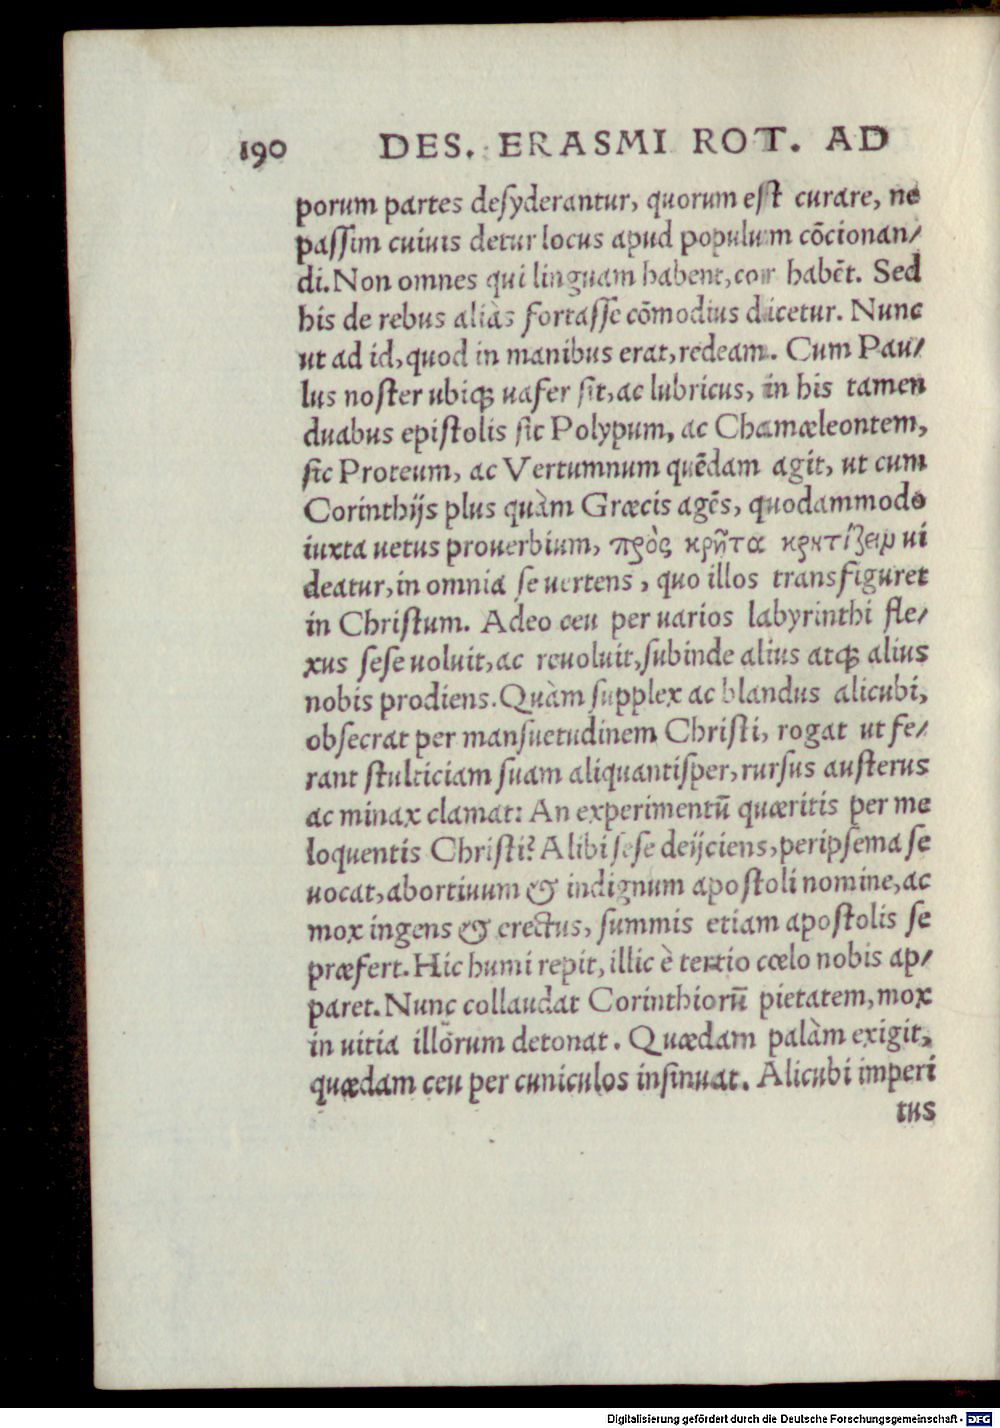 190 DES. ERASMI ROT. AD
porum partes deſyderantur, quorum eſt curare, ne
paſſim cuiuis detur locus apud populum cōcionan/
di. Non omnes qui linguam habent, cor habēt. Sed
his de rebus aliàs fortaſſe cōmodius dicetur. Nunc
ut ad id, quod in manibus erat, redeam. Cum Pau/
lus noſter ubiqꝫ uafer ſit, ac lubricus, in his tamen
duabus epiſtolis ſic Polypum, ac Chamæleontem,
ſic Proteum, ac Vertumnum quēdam agit, ut cum
Corinthijs plus quàm Græcis agēs, quodammodo
iuxta uetus prouerbium, πρὸς κρῆτα κρητίζειν ui
deatur, in omnia ſe uertens, quo illos transfiguret
in Chriſtum. Adeo ceu per uarios labyrinthi fle/
xus ſeſe uoluit, ac reuoluit, ſubinde alius atqꝫ alius
nobis prodiens. Quàm ſupplex ac blandus alicubi,
obſecrat per manſuetudinem Chriſti, rogat ut fe/
rant ſtulticiam ſuam aliquantiſper, rurſus auſterus
ac minax clamat: An experimentū quæritis per me
loquentis Chriſti? Alibi ſeſe deijciens, peripſema ſe
uocat, abortiuum & indignum apoſtoli nomine, ac
mox ingens & erectus, ſummis etiam apoſtolis ſe
præfert. Hic humi repit, illic è tertio cœlo nobis ap/
paret. Nunc collaudat Corinthiorū pietatem, mox
in uitia illorum detonat. Quædam palàm exigit,
quædam ceu per cuniculos inſinuat. Alicubi imperi
tus
Digitalisierung gefördert durch die Deutsche Forschungsgemeinschaft - DFG